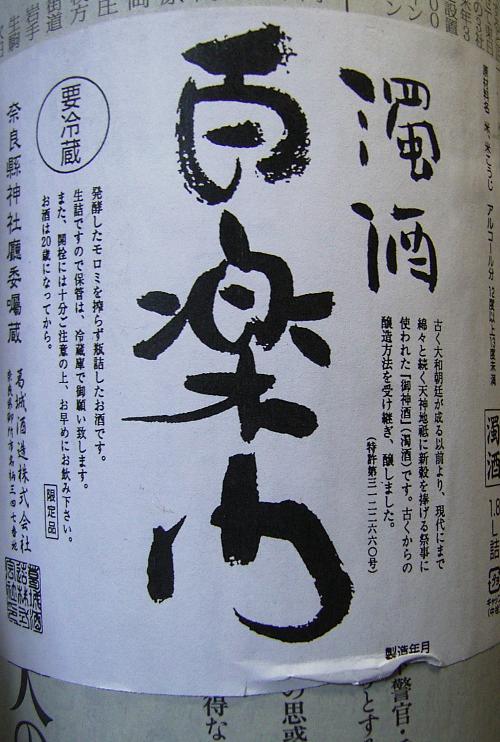 原材料名 米、米こうじ アルコール分 12度以上13度未満
濁酒
1.8L詰
濁酒
古く大和朝廷が成る以前より、現代にまで
綿々と続く天神地祗に新穀を捧げる祭事に
使われた『御神酒』(濁酒)です。古くからの
醸造方法を受け継ぎ、醸しました。
(特許第三一二二六六〇号)
製造年月
百楽門
発酵したモロミを搾らず瓶詰したお酒です。
生詰ですので保管は、冷蔵庫で御願い致します。
また、開栓には十分ご注意の上、お早めにお飲み下さい。
お酒は20歳になってから。
限定品
要冷蔵
奈良縣神社廳委囑蔵
葛城酒造株式会社
奈良県御所市名柄三四七番地
警官・
の思惑
得な
人の